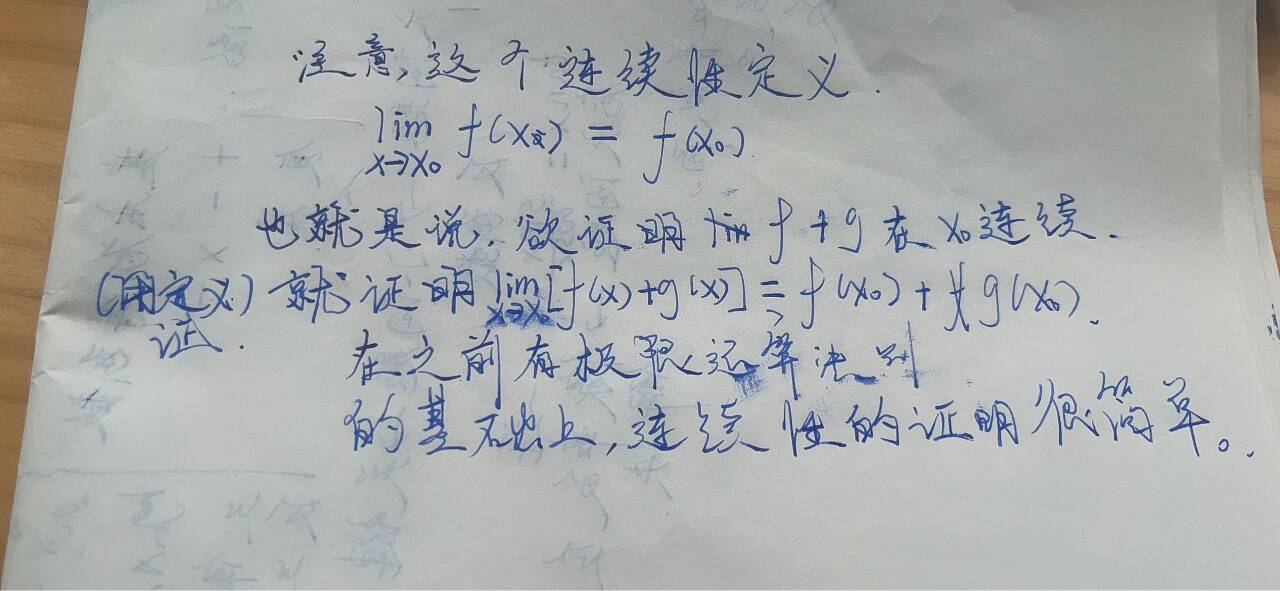 注意,这个连续性定义.
lim f(x) = f(x₀)
x→x₀
也就是说,欲证明 f+g 在 x₀连续.
(用定义)就证明lim[f(x)+g(x)]=f(x₀)+g(x₀).
证. x→x₀
在之前有极限运算法则
的基础上,连续性的证明很简单。